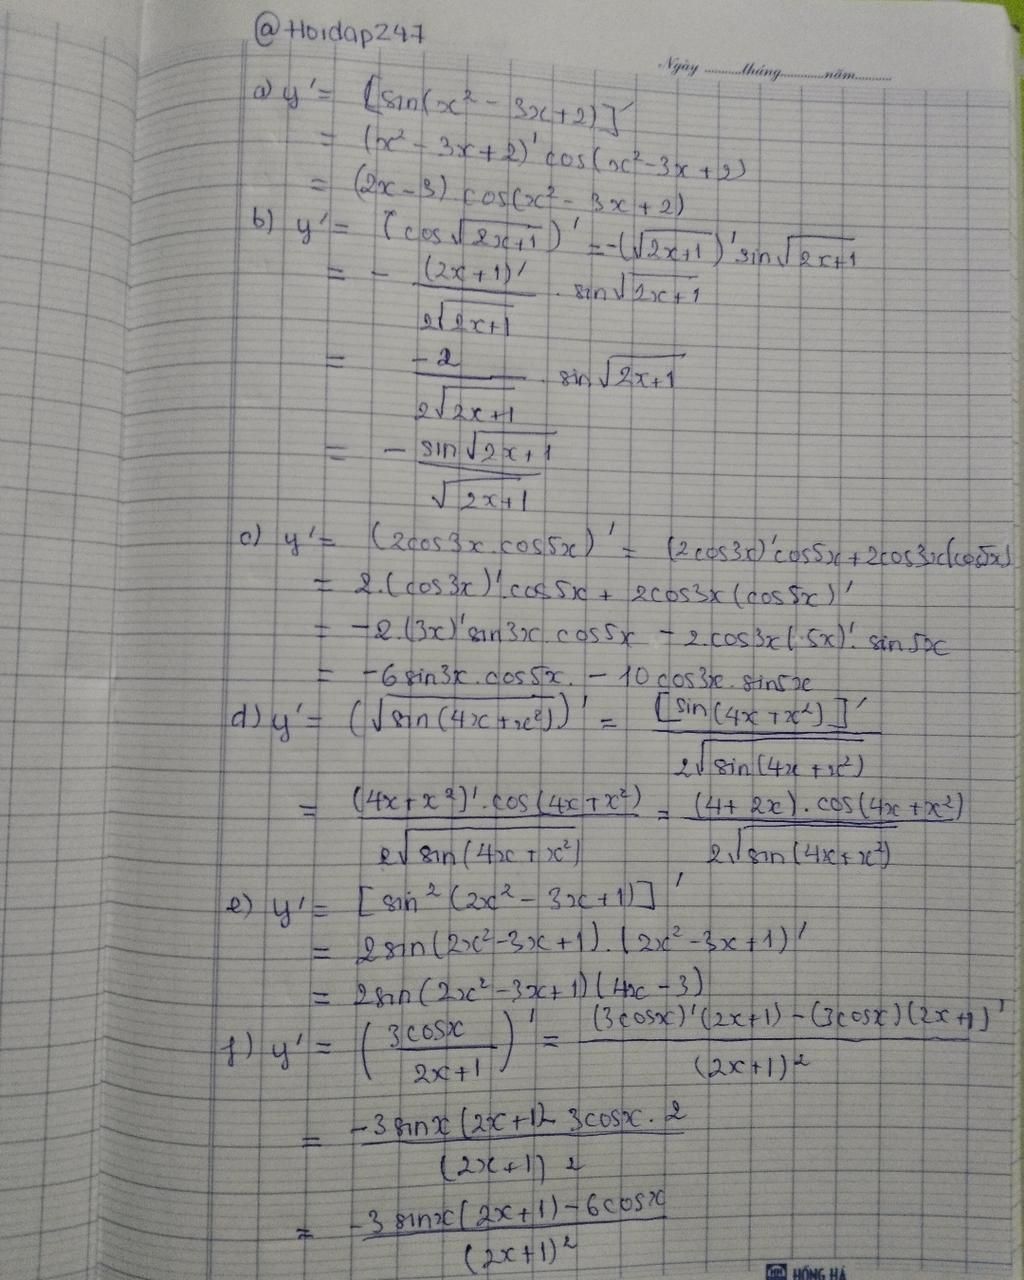 @Hoidap247
Ngày ........tháng........năm........
a) y' = [sin(x² - 3x+2)]'
= (x² - 3x+2)' cos(x²-3x+2)
= (2x-3) cos(x² - 3x+2)
b) y' = (cos√(2x+1))' = -(√(2x+1))' sin√(2x+1)
= - (2x+1)' / 2√(2x+1) . sin√(2x+1)
= -2 / 2√(2x+1) . sin√(2x+1)
= - sin√(2x+1) / √(2x+1)
c) y' = (2cos3x.cos5x)' = (2cos3x)'cos5x+2cos3x(cos5x)'
= 2.(cos3x)'.cos5x + 2cos3x(cos5x)'
= -2.(3x)'sin3x.cos5x - 2.cos3x(5x)'.sin5x
= -6sin3x.cos5x. - 10cos3x.sin5x
d) y' = (√(sin(4x+x²)))' = [sin(4x+x²)]' / 2√(sin(4x+x²))
= (4x+x²)'.cos(4x+x²) / 2√(sin(4x+x²)) = (4+2x).cos(4x+x²) / 2√(sin(4x+x²))
e) y' = [sin²(2x²-3x+1)]'
= 2sin(2x²-3x+1).(2x²-3x+1)'
= 2sin(2x²-3x+1)(4x-3)
f) y' = (3cosx / 2x+1)' = (3cosx)'(2x+1)-(3cosx)(2x+1)' / (2x+1)²
= -3sinx(2x+1)- 3cosx.2 / (2x+1)²
= -3sinx(2x+1)-6cosx / (2x+1)²
HH HỒNG HÀ